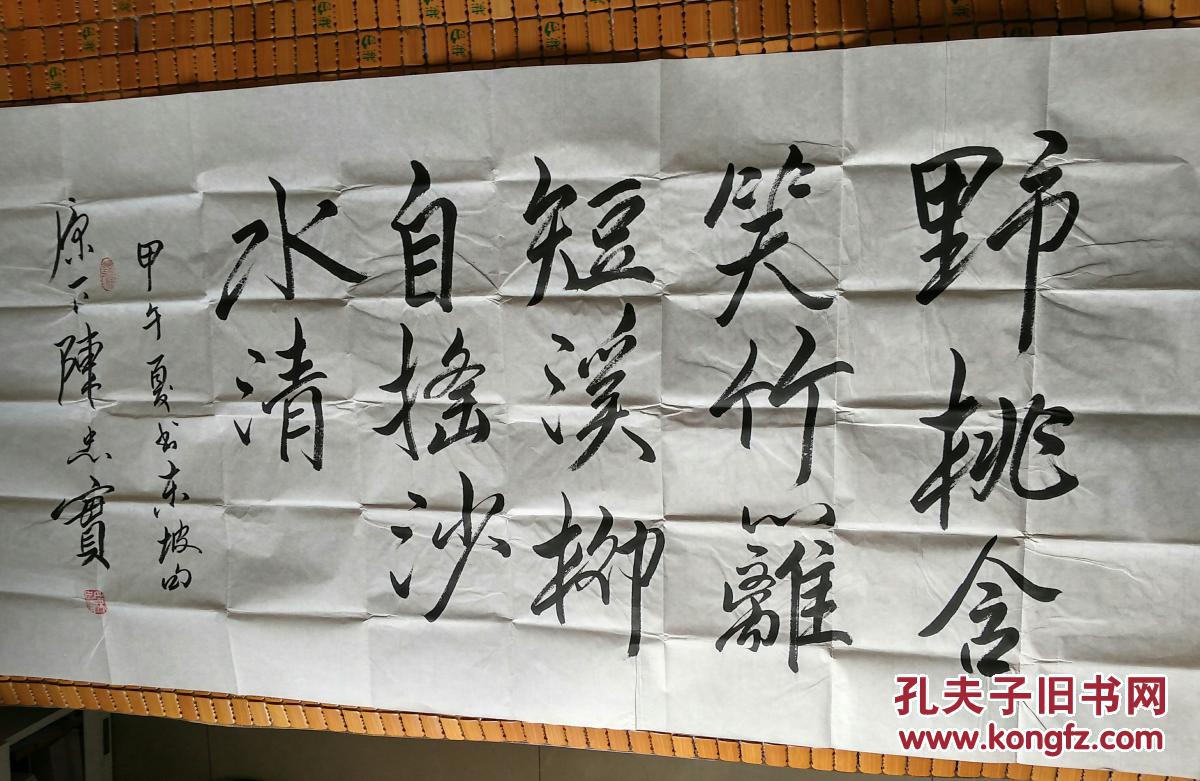 野桃含
笑竹籬
短溪柳
自摇沙
水清
甲午夏书东坡句
原下陳忠實
孔夫子旧书网
www.kongfz.com